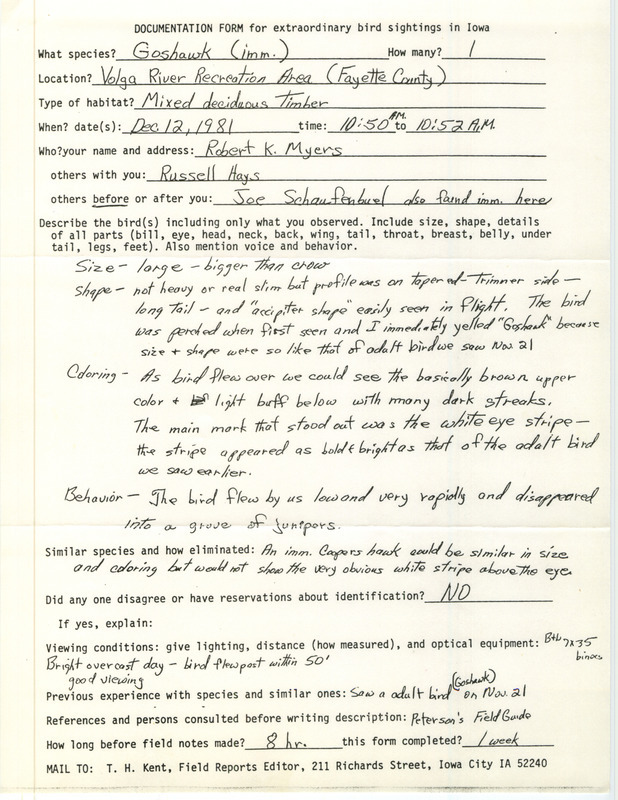 DOCUMENTATION FORM for extraordinary bird sightings in Iowa
What species? Goshawk (imm.) How many? 1
Location? Volga River Recreation Area (Fayette County)
Type of habitat? Mixed deciduous Timber
When? date(s): Dec 12, 1981 time: 10:50 AM. to 10:52 A.M.
Who?your name and address: Robert K. Myers
others with you: Russell Hays
others before or after you: Joe Schaufenbuel also found imm. here
Describe the bird(s) including only what you observed. Include size, shape, details
of all parts (bill, eye, head, neck, back, wing, tail, throat, breast, belly, under
tail, legs, feet). Also mention voice and behavior.
Size - large - bigger than crow
Shape - not heavy or real slim but profile was on tapered-Trimmer side -
long Tail - and "accipiter shape" easily seen in flight. The bird
was perched when first seen and I immediately yelled "Goshawk" because
size + shape were so like that of adult bird we saw Nov. 21
Coloring - As bird flew over we could see the basically brown upper
color + light buff below with many dark streaks.
The main mark that stood out was the white eye stripe -
the stripe appeared as bold & bright as that of the adult bird
we saw earlier.
Behavior - The bird flew by us low and very rapidly and disappeared
into a grove of junipers.
Similar species and how eliminated: An imm. Coopers hawk could be similar in size
and coloring but would not show the very obvious white stripe above the eye.
Did any one disagree or have reservations about identification? NO
If yes, explain:
Viewing conditions: give lighting, distance (how measured), and optical equipment: B+L 7x35
binocs
Bright overcast day - bird flew past within 50'
good viewing
Previous experience with species and similar ones: Saw a adult bird (Goshawk) on Nov. 21
References and persons consulted before writing description: Peterson's Field Guide
How long before field notes made? 8 hr. this form completed? 1 week
MAIL TO: T. H. Kent, Field Reports Editor, 211 Richards Street, Iowa City IA 52240